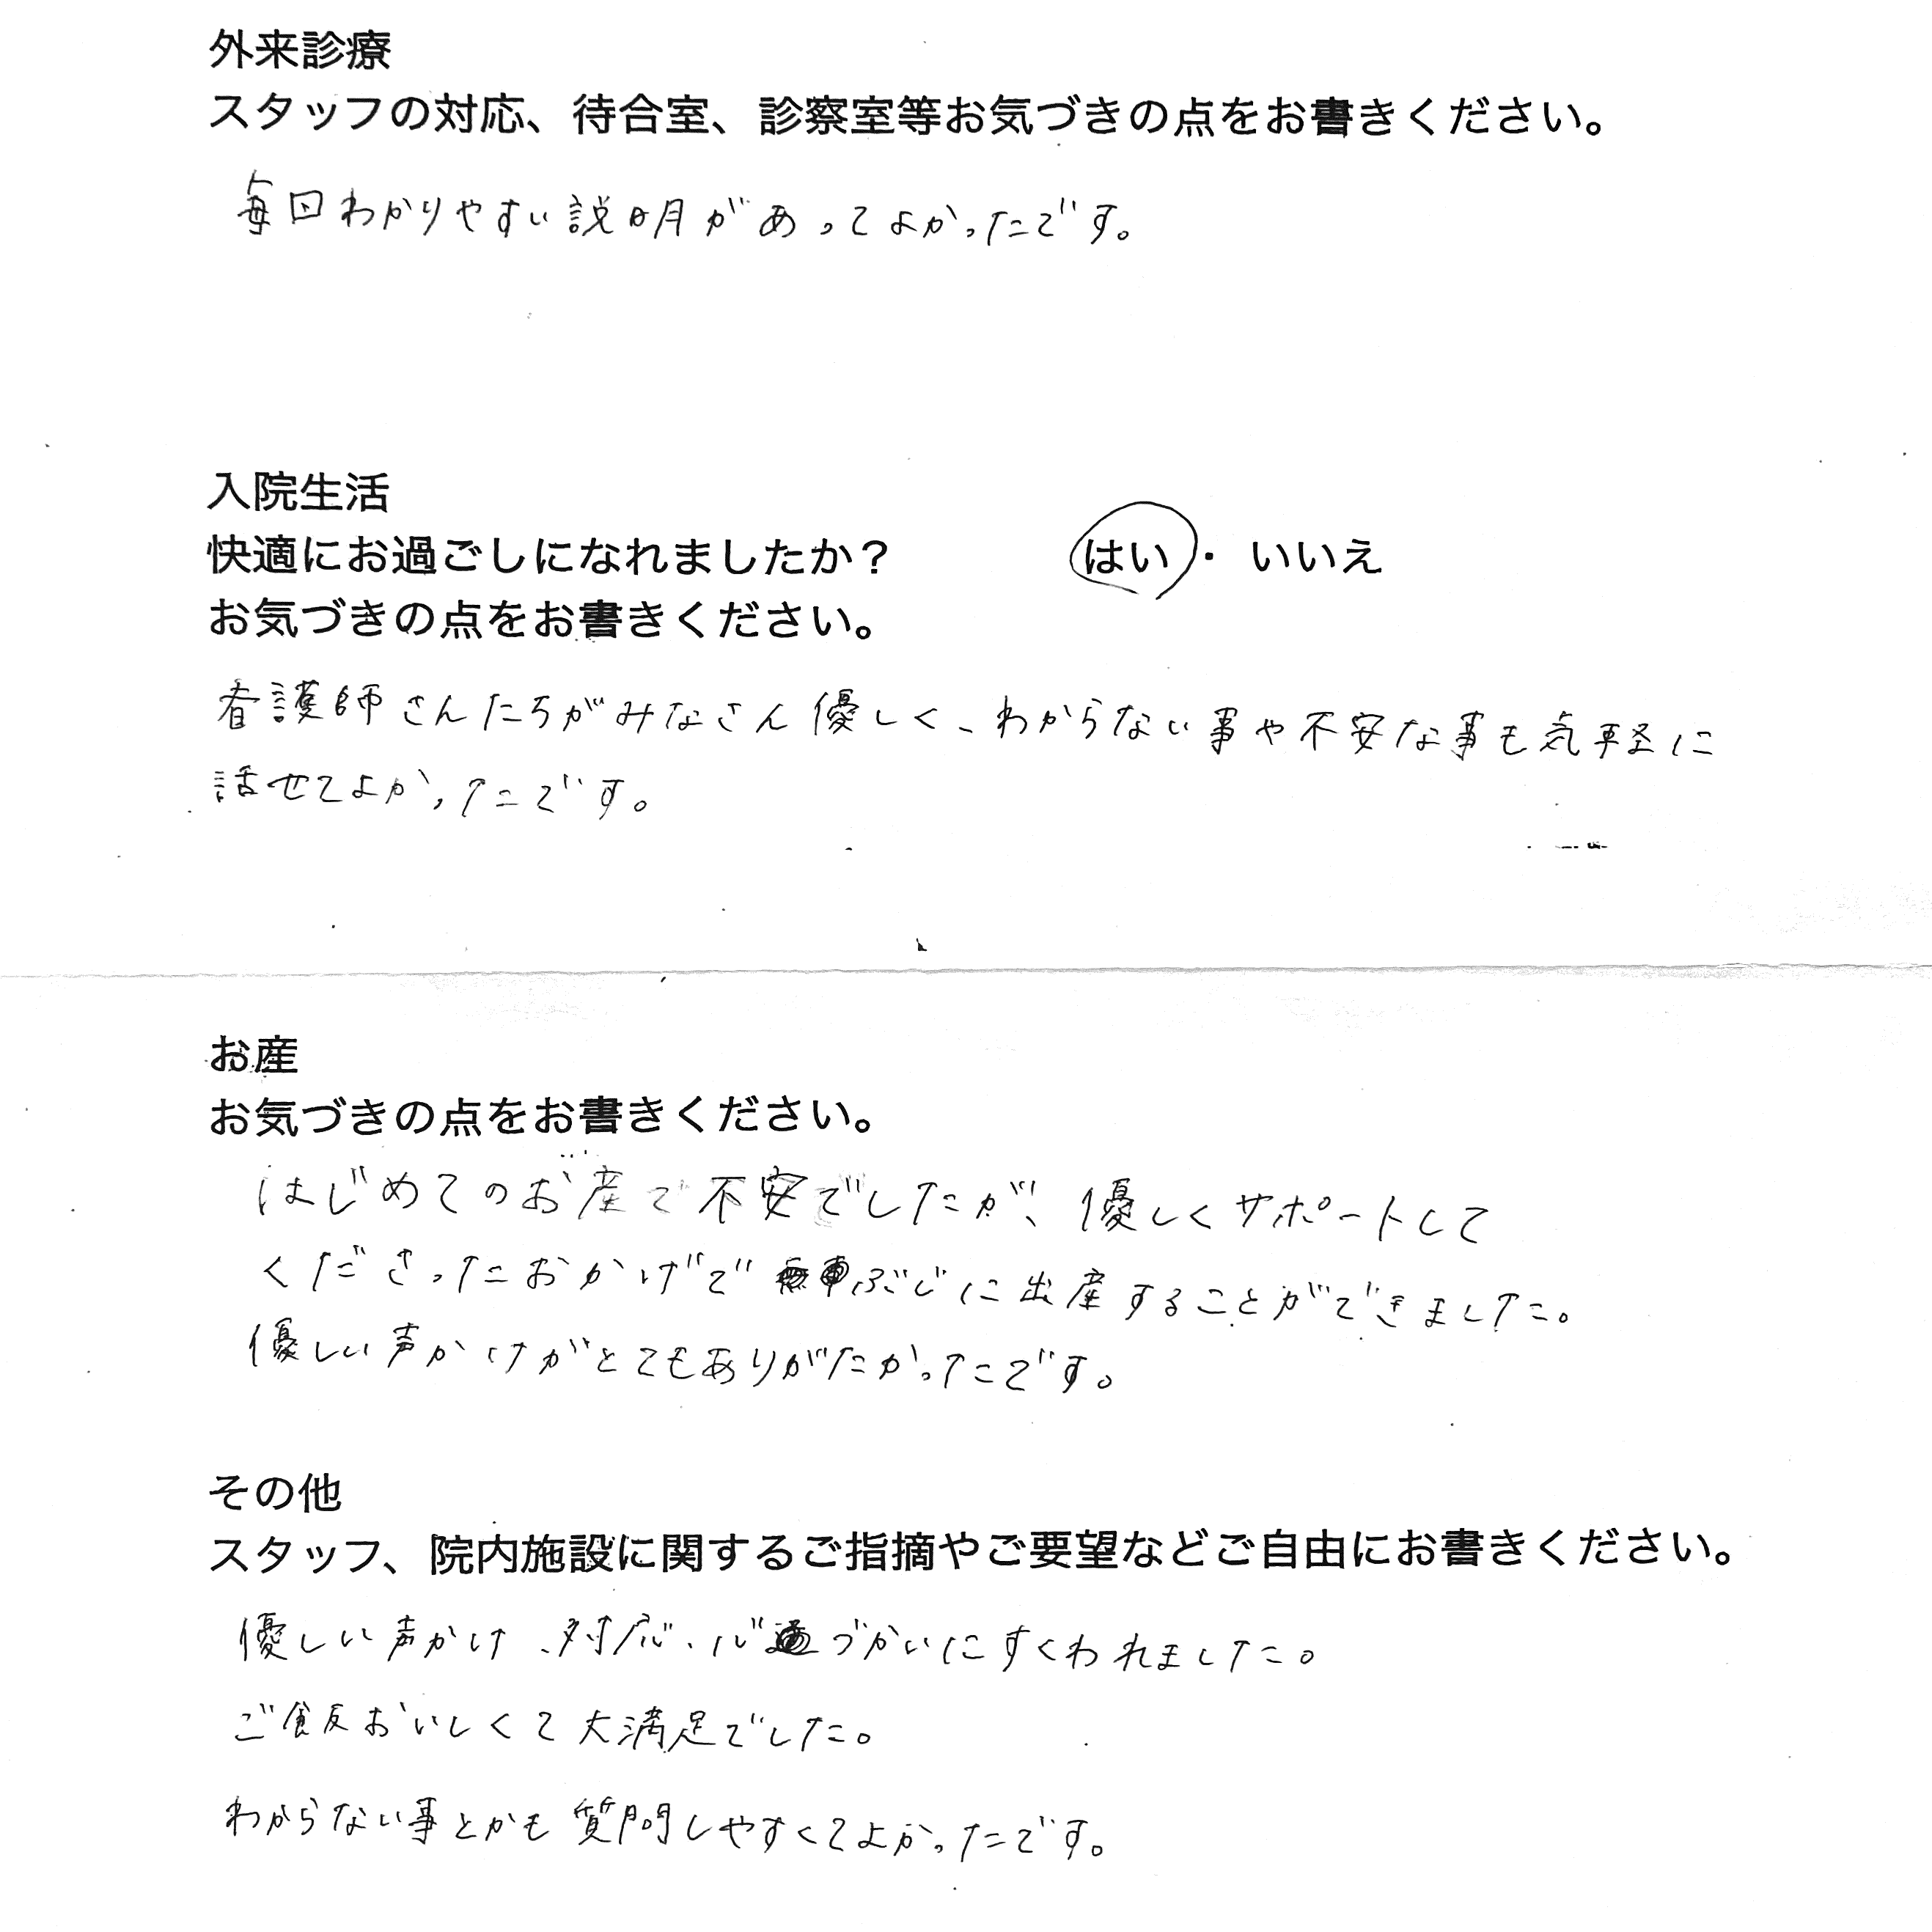 外来診療
スタッフの対応、待合室、診察室等お気づきの点をお書きください。
毎回わかりやすい説明があってよかったです。
入院生活
快適にお過ごしになれましたか？ はい・いいえ
お気づきの点をお書きください。
看護師さんたちがみなさん優しく、わからない事や不安な事も気軽に
話せてよかったです。
お産
お気づきの点をお書きください。
はじめてのお産で不安でしたが、優しくサポートして
くださったおかげで ぶじに出産することができました。
優しい声かけがとてもありがたかったです。
その他
スタッフ、院内施設に関するご指摘やご要望などご自由にお書きください。
優しい声かけ、対応、心づかいにすくわれました。
ご飯おいしくて大満足でした。
わからない事とかも質問しやすくてよかったです。